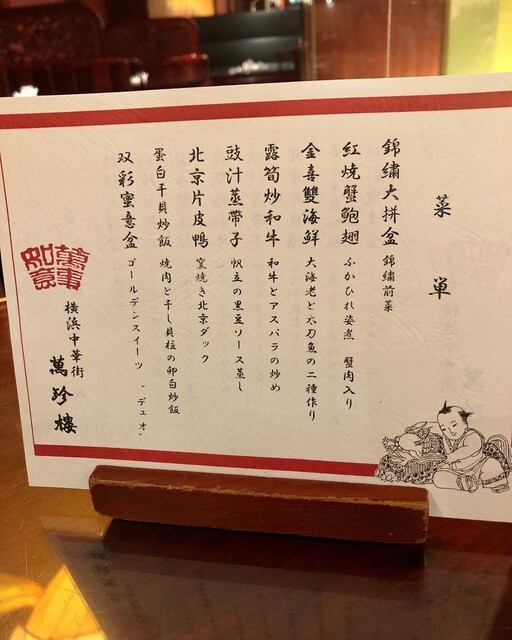 菜単
錦繡大拼盆 錦繡前菜
紅焼蟹鮑翅 ふかひれ姿煮 蟹肉入り
金喜雙海鮮 大海老と太刀魚の二種作り
露筍炒和牛 和牛とアスパラの炒め
豉汁蒸帶子 帆立の黒豆ソース蒸し
北京片皮鴨 窯焼き北京ダック
蛋白干貝炒飯 焼肉と干し貝柱の卵白炒飯
双彩蜜意盆 ゴールデンスイーツ "デュオ"
萬事
如意
横浜中華街
萬珍樓